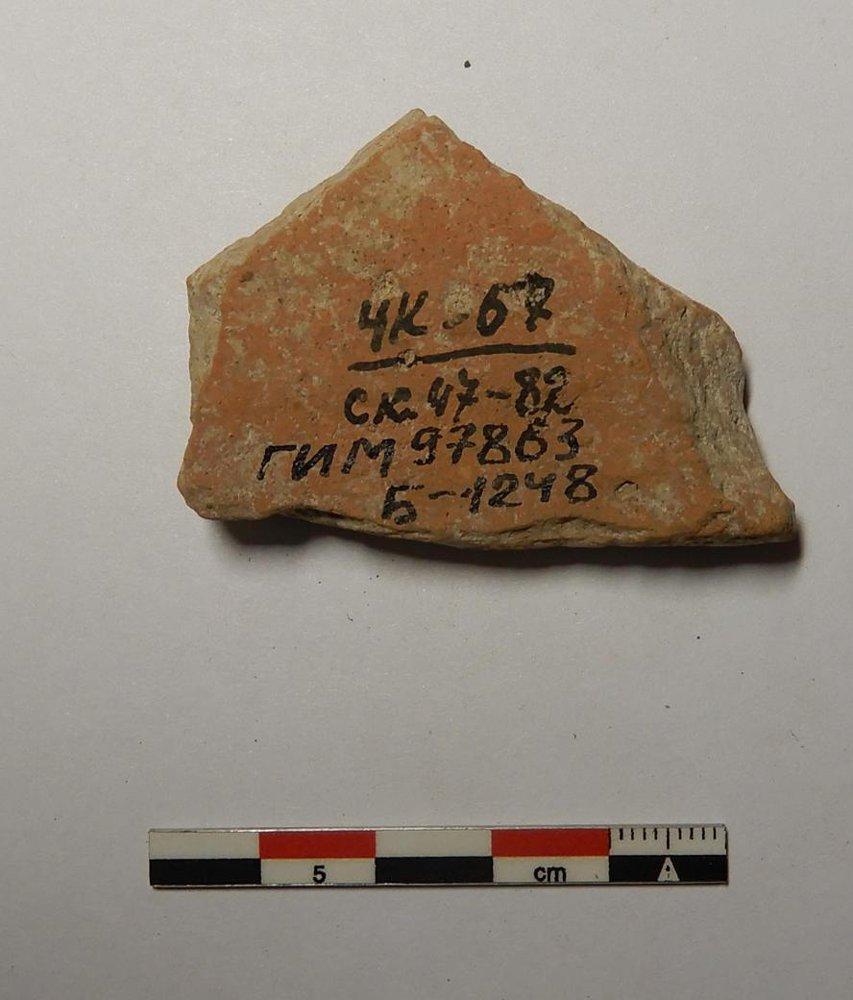 ЧК-67
ск.47-82
ГИМ 97863
Б-1248
5 cm